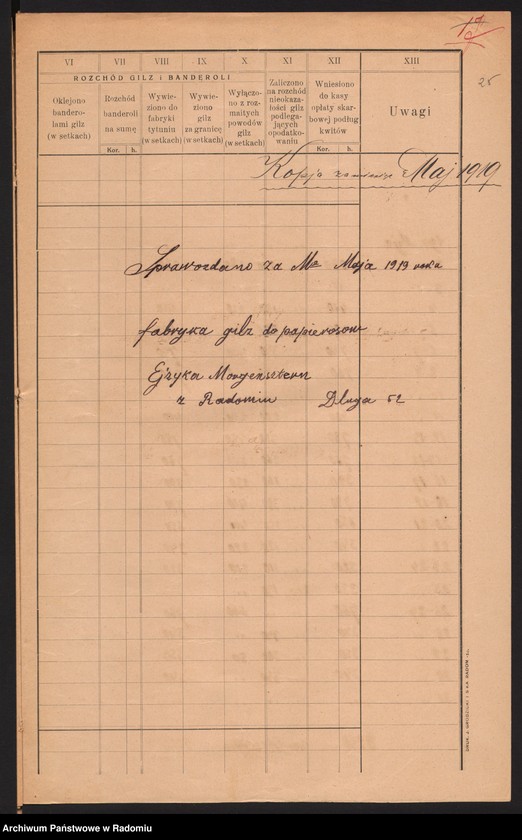 17
25
VI VII VIII IX X XI XII XIII
ROZCHÓD GILZ i BANDEROLI
Oklejono
bandero-
lami gilz
(w setkach)
Rozchód
banderoli
na sumę
Kor. h.
Wywie-
ziono do
fabryki
tytuniu
(w setkach)
Wywie-
ziono
gilz
za granicę
(w setkach)
Wyłączo-
no z roz-
maitych
powodów
gilz
(w setkach)
Zaliczono
na rozchód
nieokaza-
łości gilz
podlega-
jących
opodatko-
waniu
Wniesiono
do kasy
opłaty skar-
bowej podług
kwitów
Kor. h.
Uwagi
Kopja za miesiąc Maj 1919
Sprawozdano za Mc Maja 1919 roku
fabryka gilz do papierosow
Ejzyka Morgensztern
z Radomiu Dluga 52
DRUK. J. GRODZICKI I S-KA RADOM
Archiwum Państwowe w Radomiu